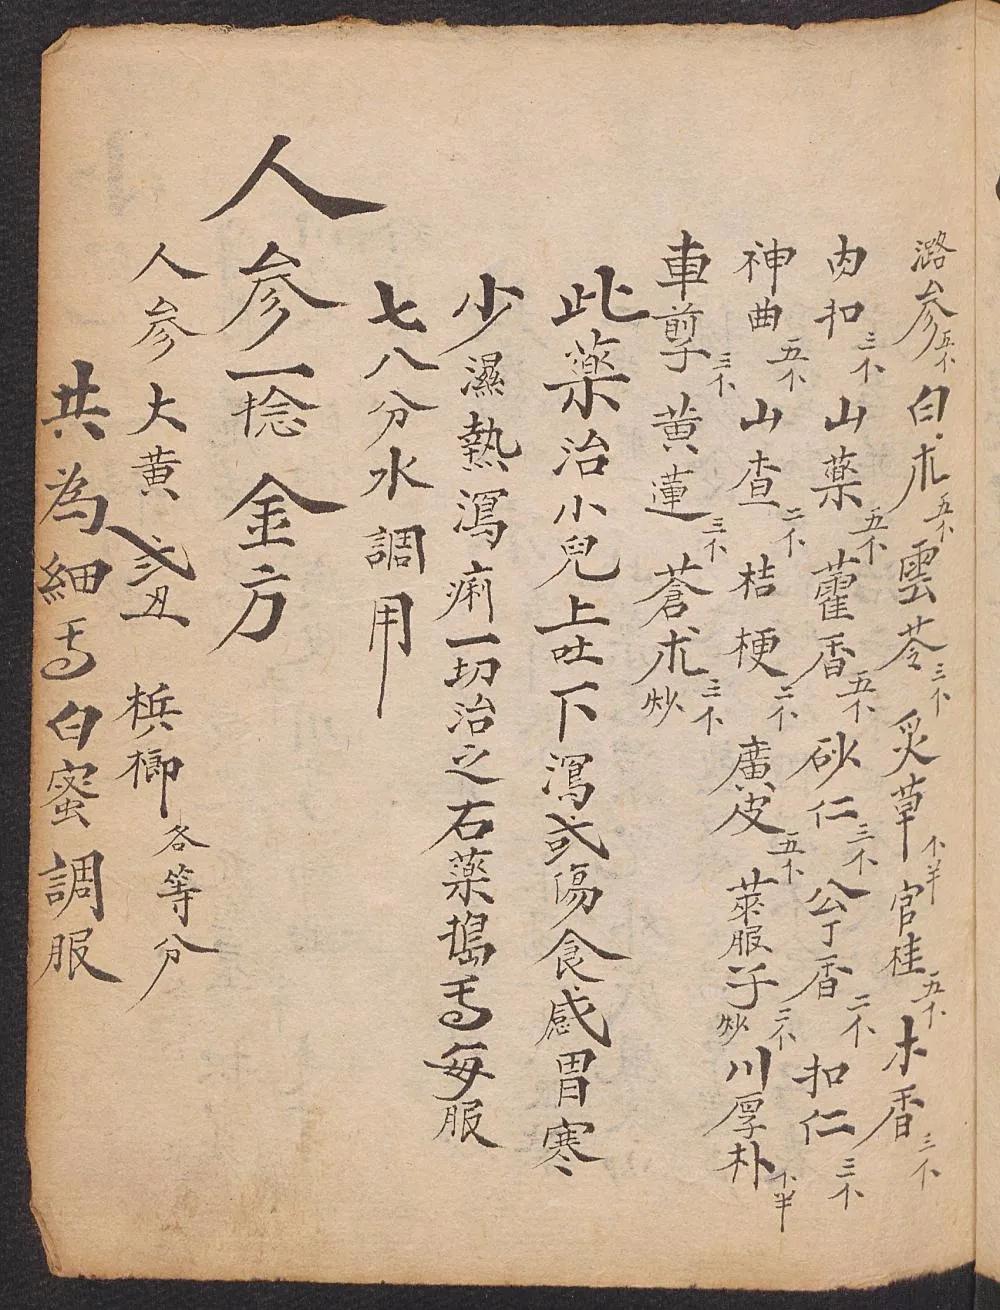 潞参五个白朮五个雲苓三个炙草个半官桂五个木香三个
肉扣三个山藥五个藿香五个砂仁三个公丁香二个扣仁三个
神曲五个山查二个桔梗二个廣皮五个萊服子炒二个川厚朴个半
車前三个黄蓮三个蒼朮炒三个
此藥治小兒上吐下瀉或傷食感冒寒
少濕熱瀉痢一切治之右藥搗末每服
七八分水調用
人参一捻金方
人参大黄二丑檳榔各等分
共為細末白蜜調服